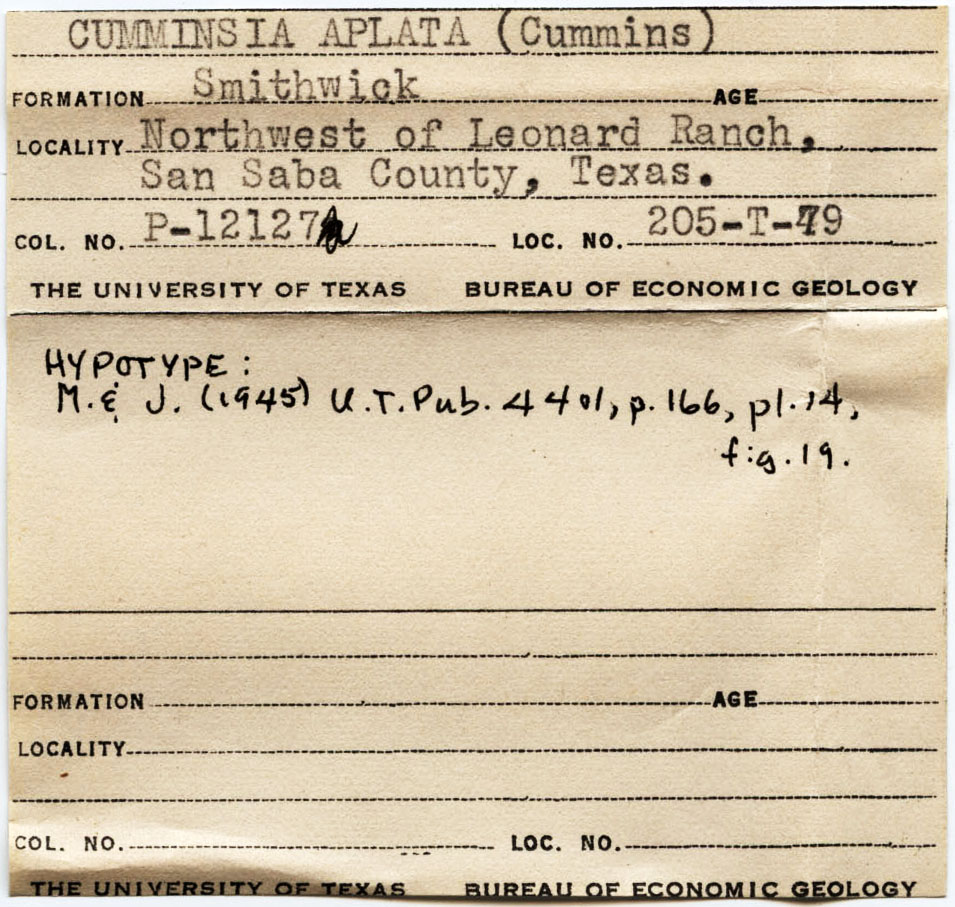 CUMMINSIA APLATA (Cummins)
FORMATION Smithwick AGE
LOCALITY Northwest of Leonard Ranch,
San Saba County, Texas.
COL. NO. P-12127 LOC. NO. 205-T-49
THE UNIVERSITY OF TEXAS BUREAU OF ECONOMIC GEOLOGY
HYPOTYPE:
M. & J. (1945) U.T. Pub. 4401, p. 166, pl. 14,
fig. 19.
FORMATION AGE
LOCALITY
COL. NO. LOC. NO.
THE UNIVERSITY OF TEXAS BUREAU OF ECONOMIC GEOLOGY